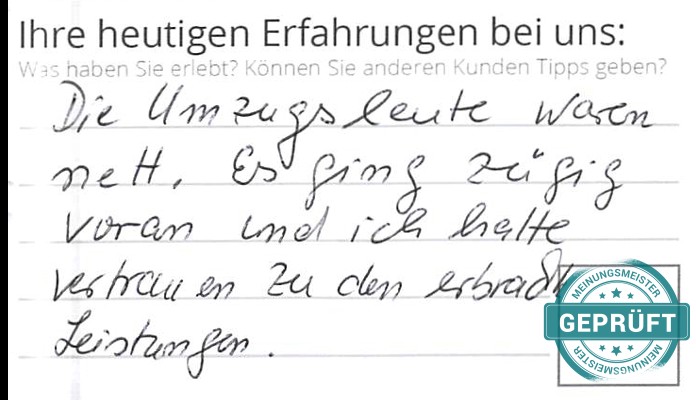 Ihre heutigen Erfahrungen bei uns:
Was haben Sie erlebt? Können Sie anderen Kunden Tipps geben?
Die Umzugsleute waren
nett. Es ging zügig
voran und ich hatte
vertrauen zu den
Leistungen.
MEINUNGSMEISTER
GEPRÜFT
MEINUNGSMEISTER